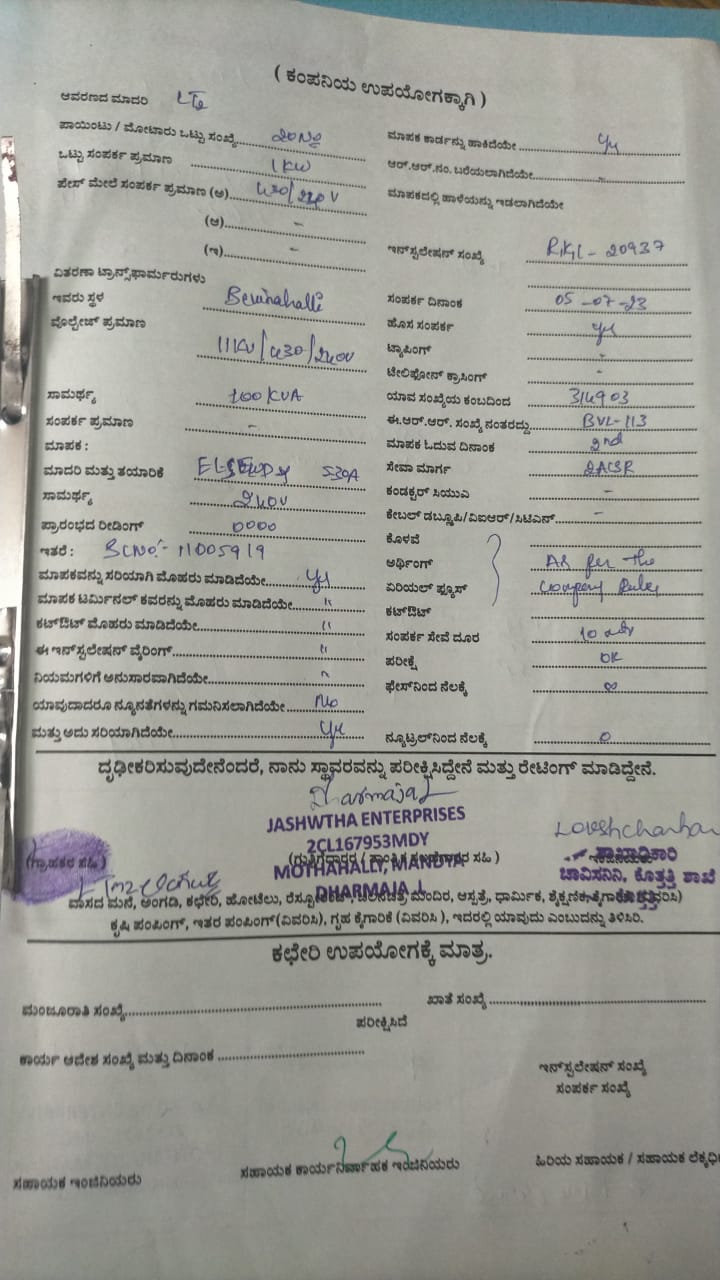 ( ಕಂಪನಿಯ ಉಪಯೋಗಕ್ಕಾಗಿ )
ಆವರಣದ ಮಾದರಿ
ಪಾಯಿಂಟು / ಮೋಟಾರು ಒಟ್ಟು ಸಂಖ್ಯೆ
ಮಾಪಕ ಕಾರ್ಡನ್ನು ಹಾಕಿದೆಯೇ
ಒಟ್ಟು ಸಂಪರ್ಕ ಪ್ರಮಾಣ 1 KW
ಆರ್.ಆರ್.ನಂ. ಬರೆಯಲಾಗಿದೆಯೇ -
ಪೇಸ್ ಮೇಲೆ ಸಂಪರ್ಕ ಪ್ರಮಾಣ (ಅ)
ಮಾಪಕದಲ್ಲಿ ಹಾಳೆಯನ್ನು ಇಡಲಾಗಿದೆಯೇ
(ಆ) -
(ಇ) -
ಇನ್‌ಸ್ಟಲೇಷನ್ ಸಂಖ್ಯೆ 20937
ವಿತರಣಾ ಟ್ರಾನ್ಸ್‌ಫಾರ್ಮರುಗಳು
ಇವರು ಸ್ಥಳ Bevinahalli
ಸಂಪರ್ಕ ದಿನಾಂಕ 05-07-23
ವೊಲ್ಟೇಜ್ ಪ್ರಮಾಣ
ಹೊಸ ಸಂಪರ್ಕ
11KV/430/240V
ಟ್ಯಾಪಿಂಗ್ -
ಟೆಲಿಫೋನ್ ಕ್ರಾಸಿಂಗ್ -
ಸಾಮರ್ಥ್ಯ 100 KVA
ಯಾವ ಸಂಖ್ಯೆಯ ಕಂಬದಿಂದ 314903
ಸಂಪರ್ಕ ಪ್ರಮಾಣ -
ಈ.ಆರ್.ಆರ್. ಸಂಖ್ಯೆ ನಂತರದ್ದು BVL-113
ಮಾಪಕ :
ಮಾಪಕ ಓದುವ ದಿನಾಂಕ 2nd
ಮಾದರಿ ಮತ್ತು ತಯಾರಿಕೆ 5-30A
ಸೇವಾ ಮಾರ್ಗ 2ACSR
ಸಾಮರ್ಥ್ಯ 240V
ಕಂಡಕ್ಟರ್ ಸಿಯುಎ -
ಪ್ರಾರಂಭದ ರೀಡಿಂಗ್ 0000
ಕೇಬಲ್ ಡಬ್ಲೂಪಿ/ವಿಐಆರ್/ಸಿಟಿಎನ್ -
ಇತರೆ : SCNo:- 11005919
ಕೊಳವೆ
ಮಾಪಕವನ್ನು ಸರಿಯಾಗಿ ಮೊಹರು ಮಾಡಿದೆಯೇ
ಅರ್ಥಿಂಗ್ As per the
ಮಾಪಕ ಟರ್ಮಿನಲ್ ಕವರನ್ನು ಮೊಹರು ಮಾಡಿದೆಯೇ "
ಏರಿಯಲ್ ಫ್ಯೂಸ್ Company Rules
ಕಟ್‌ಔಟ್ ಮೊಹರು ಮಾಡಿದೆಯೇ "
ಕಟ್‌ಔಟ್
ಈ ಇನ್‌ಸ್ಟಲೇಷನ್ ವೈರಿಂಗ್ "
ಸಂಪರ್ಕ ಸೇವೆ ದೂರ
ನಿಯಮಗಳಿಗೆ ಅನುಸಾರವಾಗಿದೆಯೇ "
ಪರೀಕ್ಷೆ OK
ಯಾವುದಾದರೂ ನ್ಯೂನತೆಗಳನ್ನು ಗಮನಿಸಲಾಗಿದೆಯೇ No
ಫೇಸ್‌ನಿಂದ ನೆಲಕ್ಕೆ ∞
ಮತ್ತು ಅದು ಸರಿಯಾಗಿದೆಯೇ
ನ್ಯೂಟ್ರಲ್‌ನಿಂದ ನೆಲಕ್ಕೆ 0
ದೃಢೀಕರಿಸುವುದೇನೆಂದರೆ, ನಾನು ಸ್ಥಾವರವನ್ನು ಪರೀಕ್ಷಿಸಿದ್ದೇನೆ ಮತ್ತು ರೇಟಿಂಗ್ ಮಾಡಿದ್ದೇನೆ.
Dharmaja L
JASHWTHA ENTERPRISES
2CL167953MDY
MOTHAHALLY, MANDYA
DHARMAJA L
(ಗ್ರಾಹಕರ ಸಹಿ)
ಶಾಖಾಧಿಕಾರಿ
ಚಾವಿಸನಿನಿ, ಕೊತ್ತತ್ತಿ ಶಾಖೆ
ವಾಸದ ಮನೆ, ಅಂಗಡಿ, ಕಛೇರಿ, ಹೋಟೆಲು, ಮಂದಿರ, ಆಸ್ಪತ್ರೆ, ಧಾರ್ಮಿಕ, ಶೈಕ್ಷಣಿಕ,
ಕೃಷಿ ಪಂಪಿಂಗ್, ಇತರ ಪಂಪಿಂಗ್(ವಿವರಿಸಿ), ಗೃಹ ಕೈಗಾರಿಕೆ (ವಿವರಿಸಿ ), ಇದರಲ್ಲಿ ಯಾವುದು ಎಂಬುದನ್ನು ತಿಳಿಸಿರಿ.
ಕಛೇರಿ ಉಪಯೋಗಕ್ಕೆ ಮಾತ್ರ.
ಮಂಜೂರಾತಿ ಸಂಖ್ಯೆ
ಖಾತೆ ಸಂಖ್ಯೆ
ಪರೀಕ್ಷಿಸಿದೆ
ಕಾರ್ಯ ಆದೇಶ ಸಂಖ್ಯೆ ಮತ್ತು ದಿನಾಂಕ
ಇನ್‌ಸ್ಟಲೇಷನ್ ಸಂಖ್ಯೆ
ಸಂಪರ್ಕ ಸಂಖ್ಯೆ
ಸಹಾಯಕ ಇಂಜಿನಿಯರು
ಸಹಾಯಕ ಕಾರ್ಯನಿರ್ವಾಹಕ ಇಂಜಿನಿಯರು
ಹಿರಿಯ ಸಹಾಯಕ / ಸಹಾಯಕ